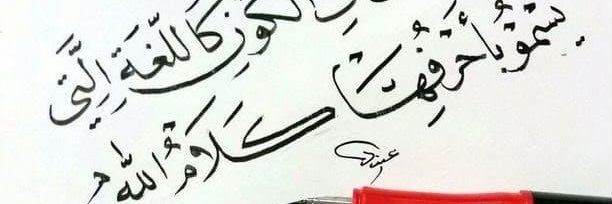 الكَونِ كَاللُّغَةِ الَّتِي
يَسْمُو بِأَحْرُفِهَا كَلَامُ اللهِ